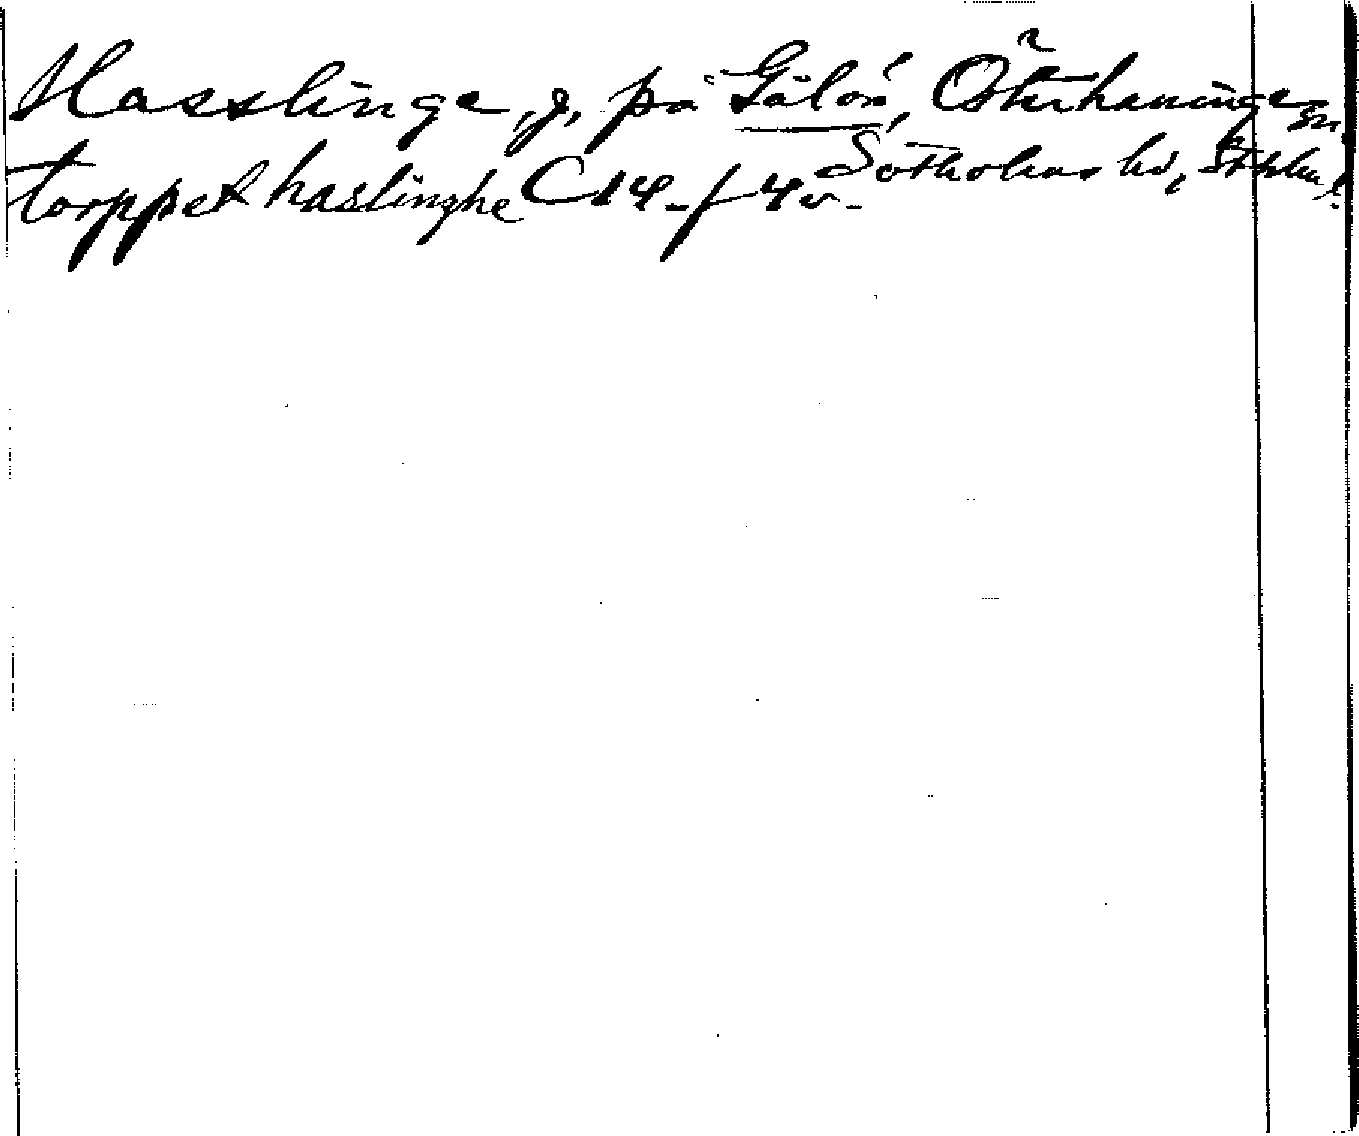 Hasslinge, g, på Gålön, Österhaninge sn
Sotholms hd, Sthlm l.
torppet haslinghe C14 - f 4v -